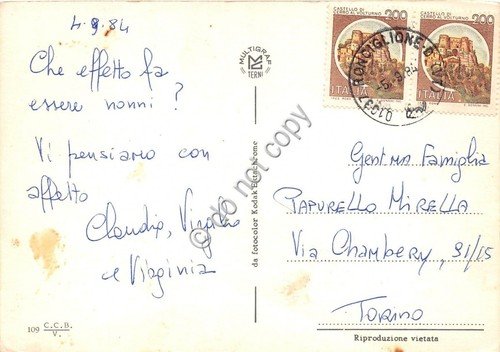 4.9.84
Che effetto fa
essere nonni?
Vi pensiamo con
affetto
Claudio,
e Virginia
109 C.C.B.
V.
MULTIGRAF
TERNI
da fotocolor Kodak Ektachrome
© do not copy
CASTELLO DI
CERRO AL VOLTURNO
200
ITALIA
CASTELLO DI
CERRO AL VOLTURNO
200
ITALIA
RONCIGLIONE
01037
Gent.ma Famiglia
PAPURELLO MIRELLA
Via Chambery, 91/15
Torino
Riproduzione vietata